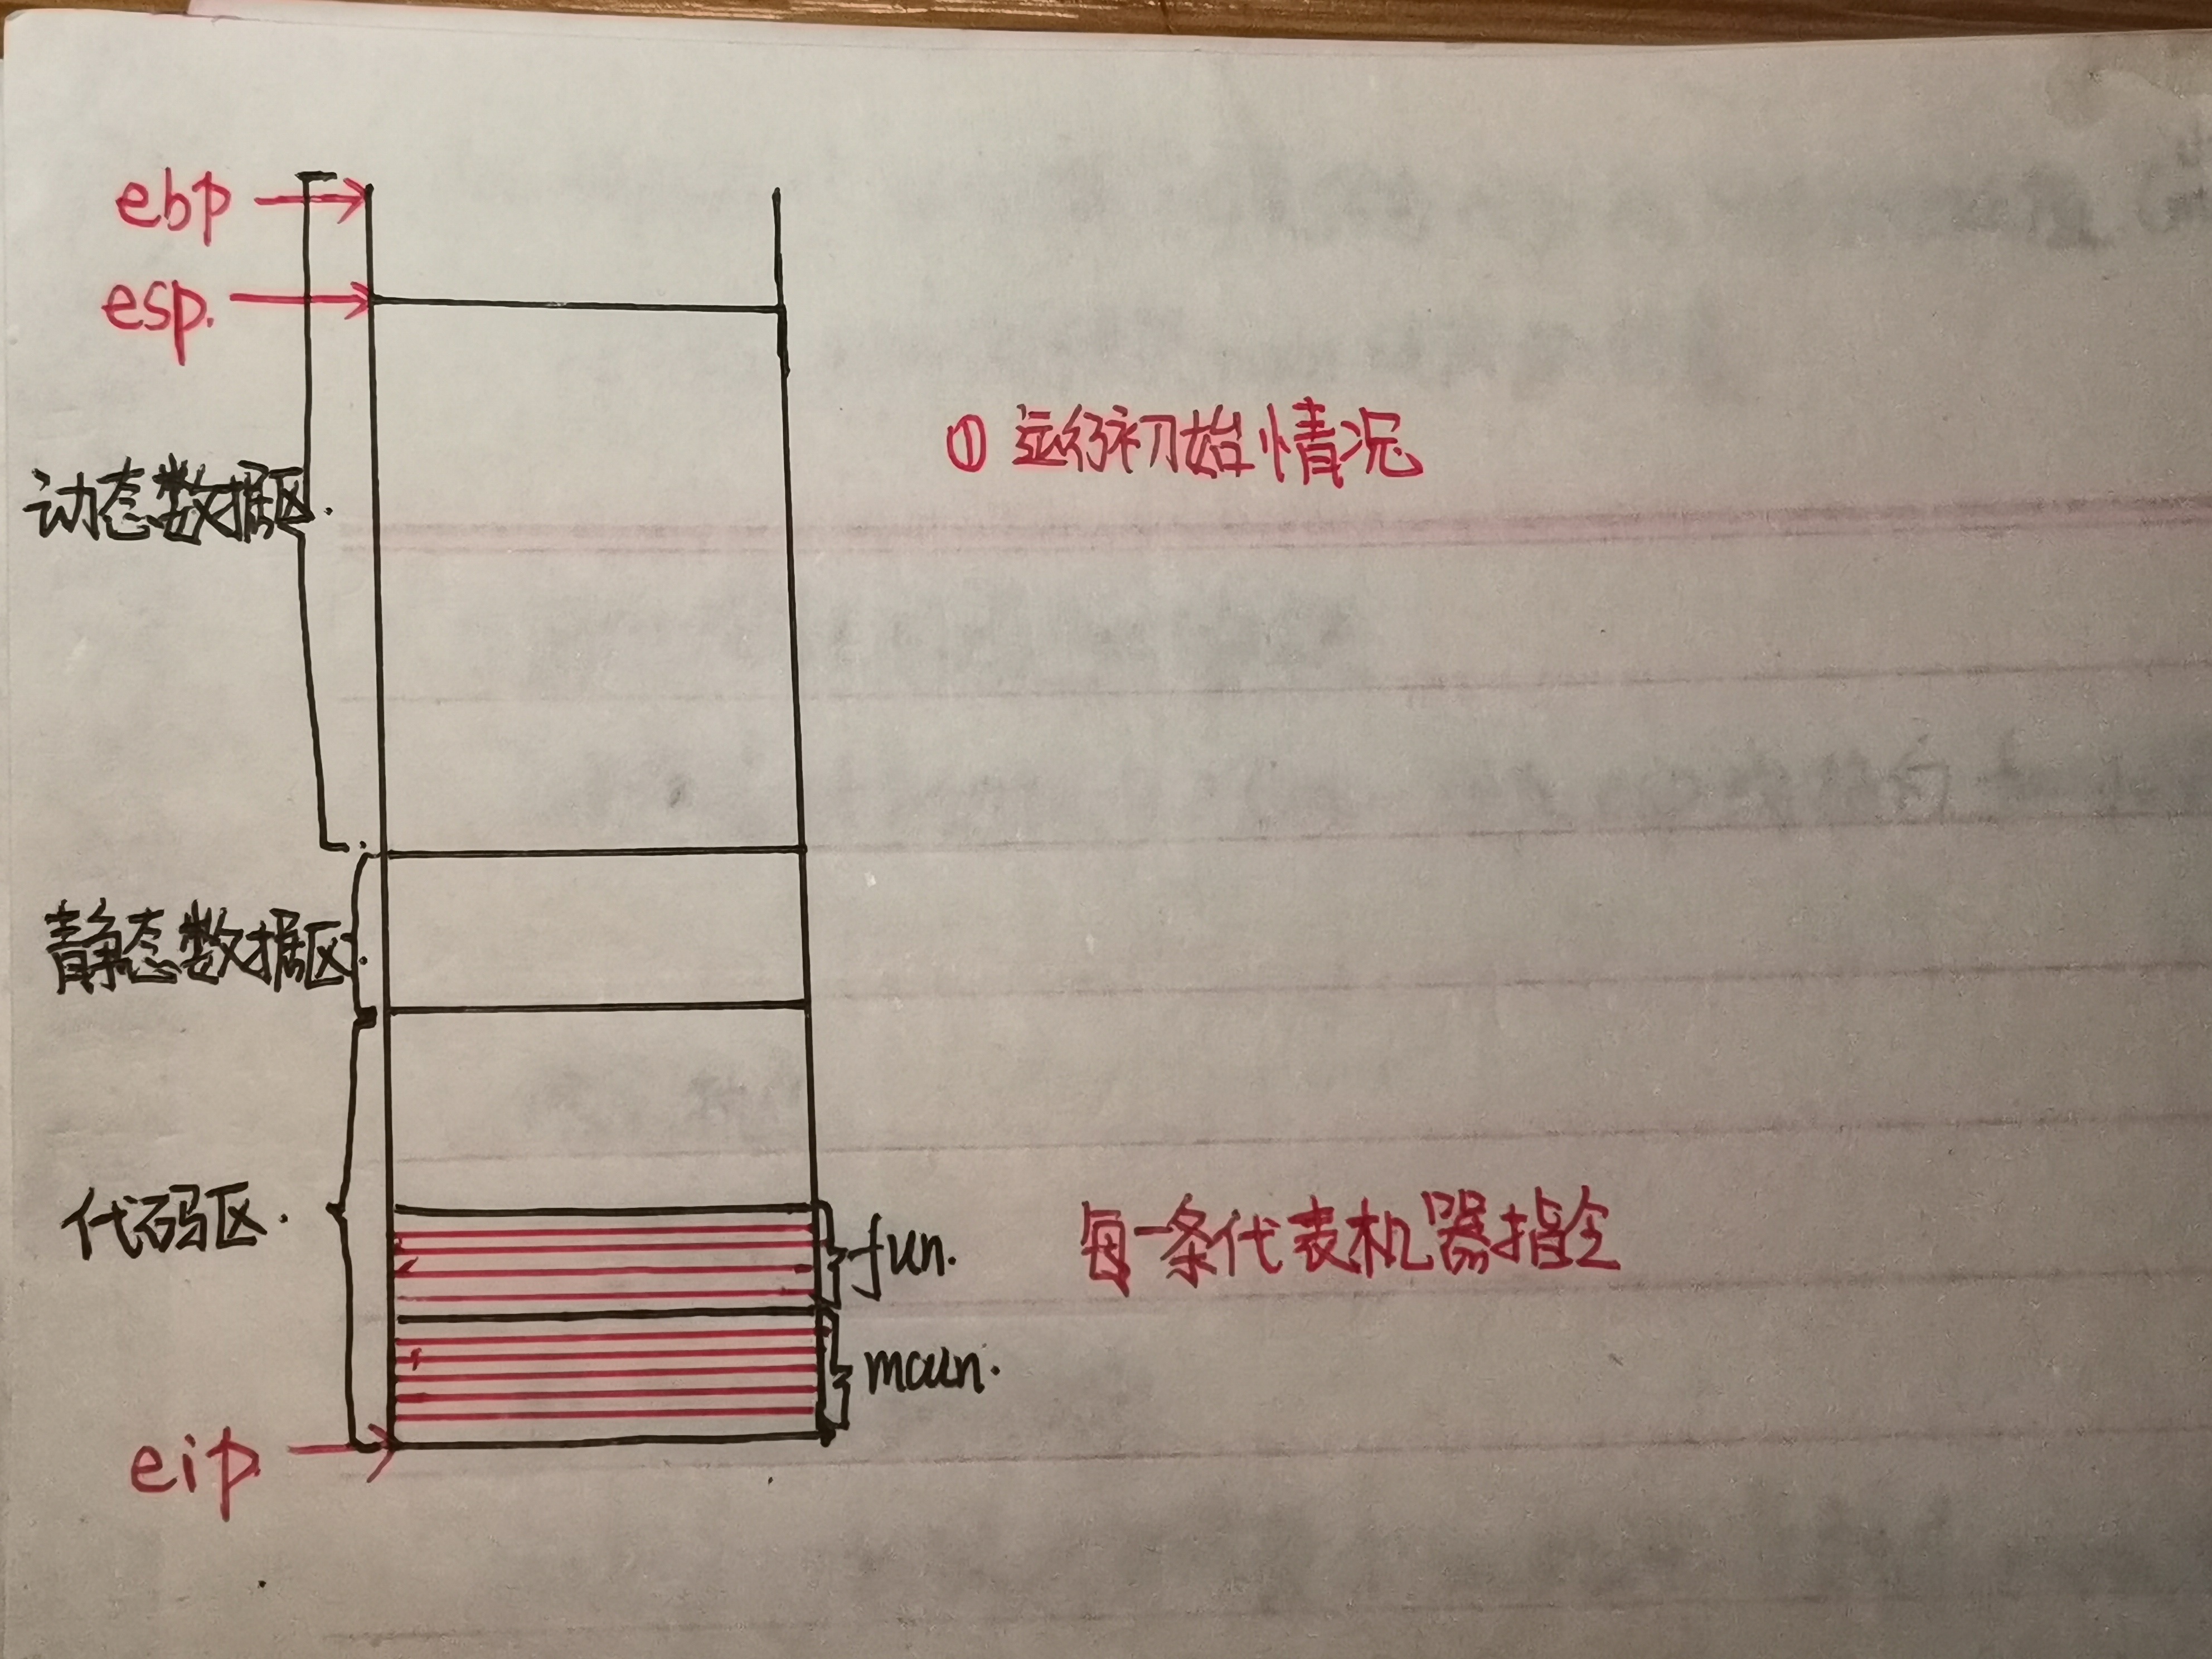 ebp
esp.
① 运行初始情况
动态数据区.
静态数据区.
代码区.
fun.
每一条代表机器指令
main.
eip